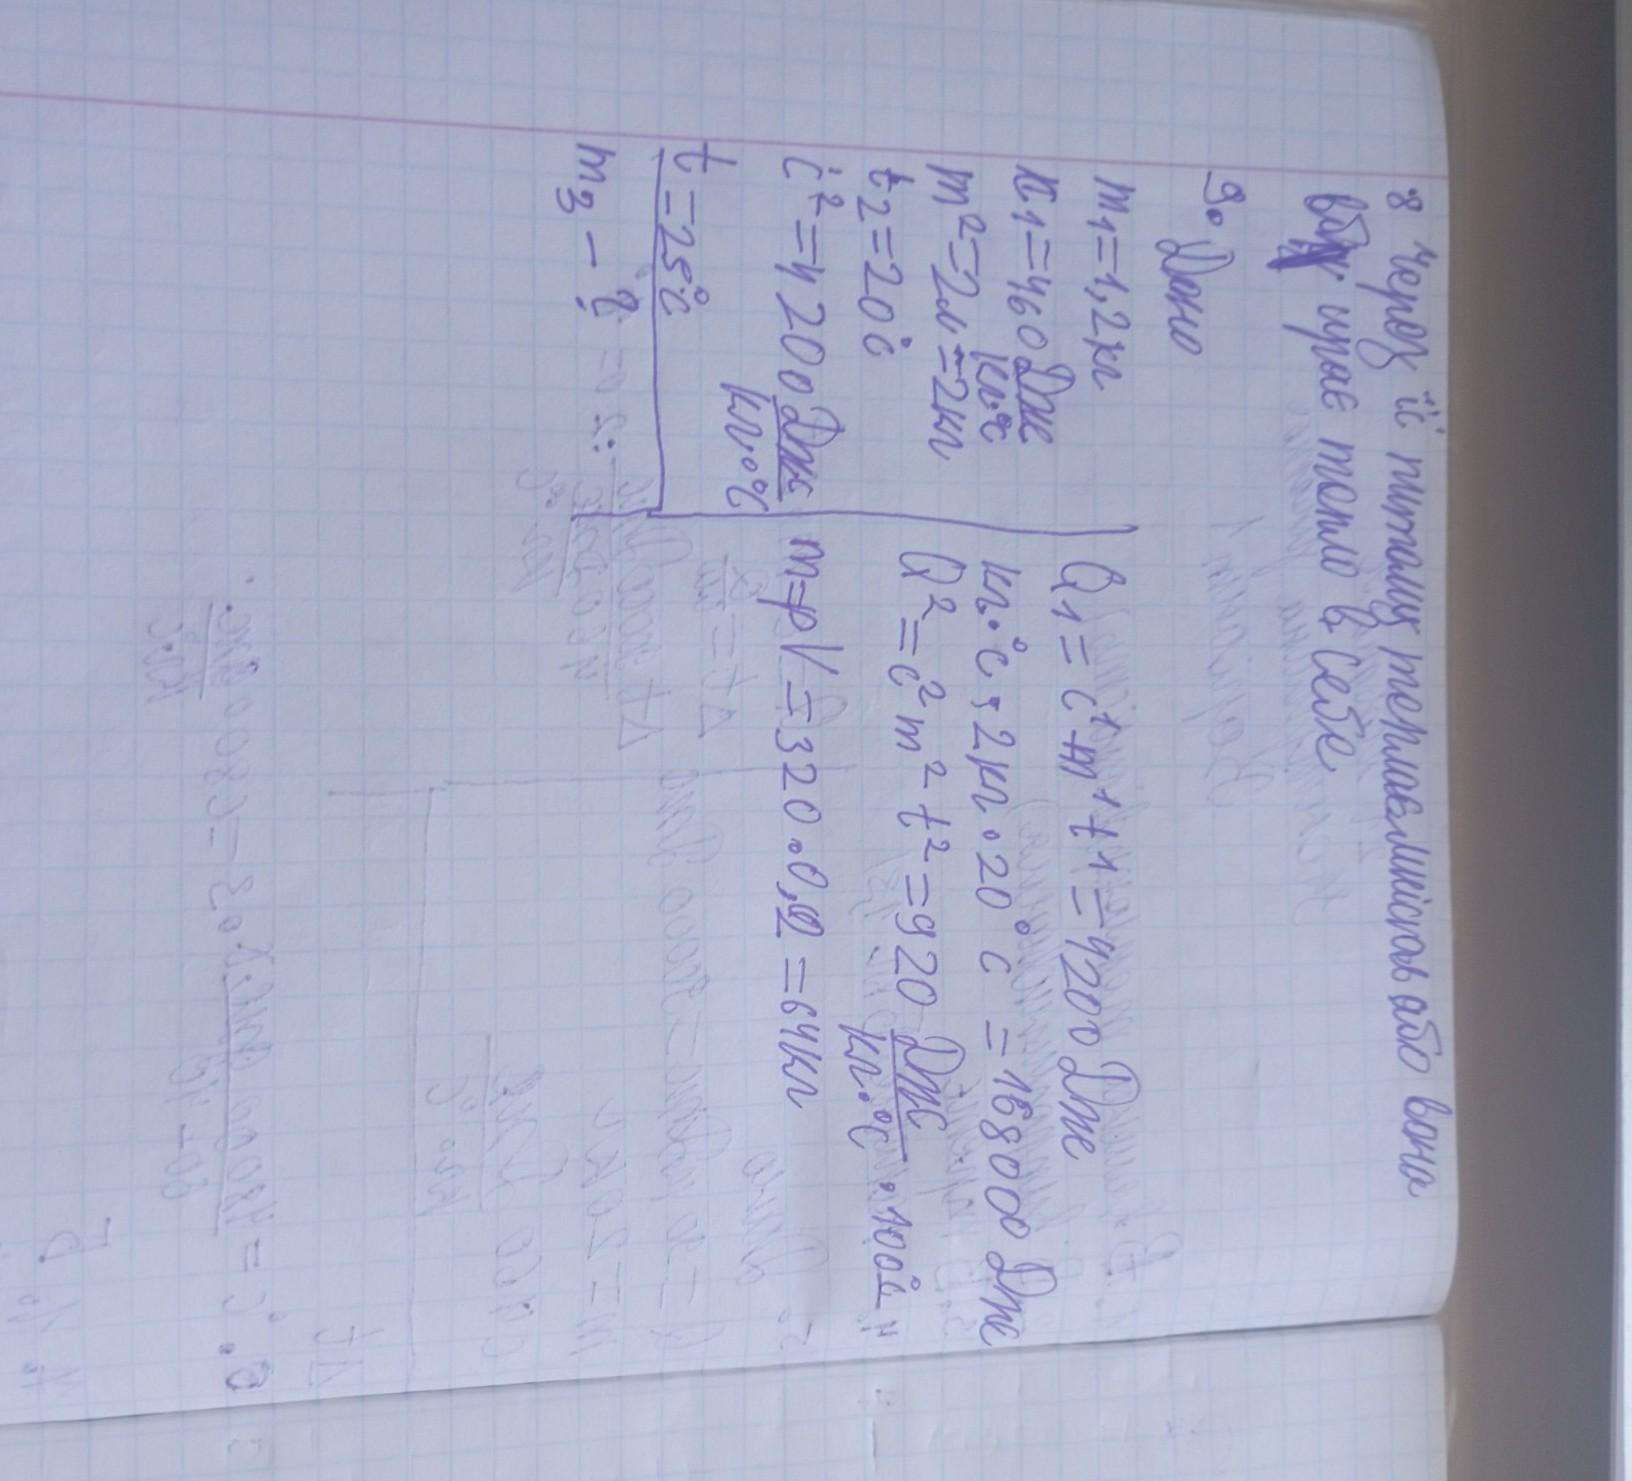 8 Через її питому теплоємність або вона
вбирає тепло в себе
9. Дано
m1=1,2кг
к1=460 Дж
кг·°С
m²=2л=2кг
t2=20°С
с²=4200 Дж
кг·°С
t=25°С
m3-?
Q1=c¹m¹t1=4200 Дж
кг·°С, 2кг·20°С=168000 Дж
Q²=c²m²t²=920 Дж
кг·°С ·100°С
m=ρV=320·0,2=64кг